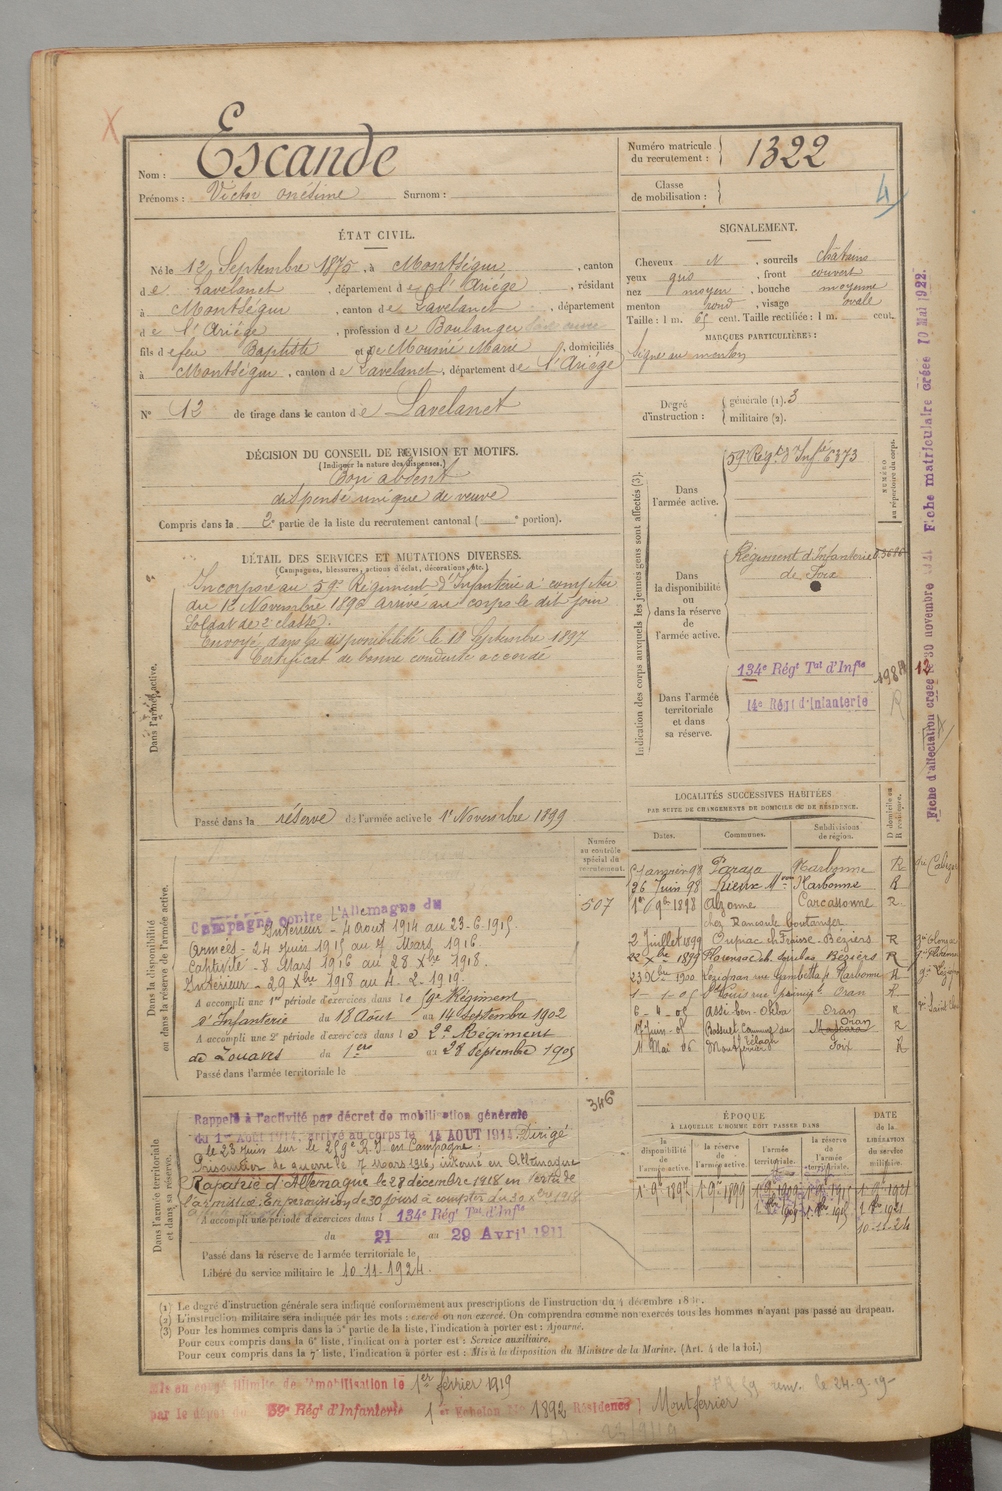 Escande
Nom :
Prénoms : Victor onésime Surnom :
Numéro matricule
du recrutement : 1322
Classe
de mobilisation :
4
ÉTAT CIVIL.
Né le 12 Septembre 1875, à Montségur, canton
de Lavelanet, département de l'Ariége, résidant
à Montségur, canton de Lavelanet, département
de l'Ariége, profession de Boulanger
fils de feu Baptiste et de Mounié Marie, domiciliés
à Montségur, canton de Lavelanet, département de l'Ariége
N° 12 de tirage dans le canton de Lavelanet
SIGNALEMENT.
Cheveux N, sourcils châtains
yeux gris, front couvert
nez moyen, bouche moyenne
menton rond, visage ovale
Taille : 1 m. 65 cent. Taille rectifiée : 1 m. cent.
MARQUES PARTICULIÈRES :
Signe au menton
Degré
d'instruction :
générale (1). 3
militaire (2).
DÉCISION DU CONSEIL DE RÉVISION ET MOTIFS.
(Indiquer la nature des dispenses.)
Bon absent
dispensé unique de veuve
Compris dans la 2e partie de la liste du recrutement cantonal ( e portion).
DÉTAIL DES SERVICES ET MUTATIONS DIVERSES.
(Campagnes, blessures, actions d'éclat, décorations, etc.)
Dans l'armée active.
Incorporé au 59e Régiment d'Infanterie à compter
du 12 Novembre 1896 arrivé au corps le dit jour
Soldat de 2e classe.
Envoyé dans la disponibilité le 18 Septembre 1897
Certificat de bonne conduite accordé
Passé dans la réserve de l'armée active le 1er Novembre 1899
Indication des corps auxquels les jeunes gens sont affectés (3).
NUMÉRO
au répertoire du corps.
Dans
l'armée active.
59e Régt d'Infie 6373
Dans
la disponibilité
ou dans la réserve
de
l'armée active.
Régiment d'Infanterie
de Foix
Dans l'armée
territoriale
et dans
sa réserve.
134e Régt Tal d'Infie
14e Régt d'Infanterie
R
Fiche d'affectation créée 30 novembre
Fiche matriculaire créée 10 Mai 1922.
LOCALITÉS SUCCESSIVES HABITÉES
PAR SUITE DE CHANGEMENTS DE DOMICILE OU DE RÉSIDENCE.
Dates. Communes. Subdivisions de région. D domicile ou R résidence.
Janvier 98 Paraza Narbonne R
26 Juin 98 Narbonne R
1er 9bre 1898 Alzonne Carcassonne R
2 Juillet 1899 Béziers R
22 Xbre 1899 Florensac Béziers R
23 Xbre 1900 Lézignan rue Gambetta Narbonne R
1-1-05 St Louis rue Oran R
6-4-05 Assi-ben-Okba Oran R
Juin 05 Bossuet Oran Mascara R
11 Mai 06 Montferrier Foix R
Numéro
au contrôle
spécial du
recrutement.
507
346
Dans la disponibilité
ou dans la réserve de l'armée active.
Campagne contre L'Allemagne du
Intérieur - 4 aout 1914 au 23-6-1915
Armées - 24 Juin 1915 au 7 Mars 1916
Captivité - 8 Mars 1916 au 28 Xbre 1918.
Intérieur - 29 Xbre 1918 au 4-2-1919.
A accompli une 1re période d'exercices dans le 59e Régiment
d'Infanterie du 18 Août au 14 Septembre 1902
A accompli une 2e période d'exercices dans le 2e Régiment
de Zouaves du 1er au 28 Septembre 1905
Passé dans l'armée territoriale le
Dans l'armée territoriale
et dans sa réserve.
Rappelé à l'activité par décret de mobilisation générale
du 1er Août 1914, arrivé au corps le 14 AOUT 1914. Dirigé
le 23 Juin sur le 259e R.I en Campagne.
Prisonnier de guerre le 7 Mars 1916, interné en Allemagne
Rapatrié d'Allemagne le 28 décembre 1918 en vertu de
l'armistice. En permission de 30 jours à compter du 30 Xbre 1918
A accompli une période d'exercices dans l 134e Régt Tal d'Infie
du 21 au 29 Avril 1911
Passé dans la réserve de l'armée territoriale le
Libéré du service militaire le 10-11-1924.
ÉPOQUE
À LAQUELLE L'HOMME DOIT PASSER DANS
DATE
de la
LIBÉRATION
du service
militaire.
la
disponibilité
de
l'armée active.
la réserve
de
l'armée active.
l'armée
territoriale.
la réserve
de
l'armée
territoriale.
1er 9bre 1897 1er 9bre 1899 1er 9bre 1909 1er 9bre 1915 1er 9bre 1921
10-11-24
(1) Le degré d'instruction générale sera indiqué conformément aux prescriptions de l'instruction du 4 décembre
(2) L'instruction militaire sera indiquée par les mots : exercé ou non exercé. On comprendra comme non exercés tous les hommes n'ayant pas passé au drapeau.
(3) Pour les hommes compris dans la 5e partie de la liste, l'indication à porter est : Ajourné.
Pour ceux compris dans la 6e liste, l'indication à porter est : Service auxiliaire.
Pour ceux compris dans la 7e liste, l'indication à porter est : Mis à la disposition du Ministre de la Marine. (Art. 4 de la loi.)
Mis en congé illimité de démobilisation le 1er février 1919
par le dépôt du 59e Régt d'Infanterie 1er Echelon 1892 Résidence Montferrier